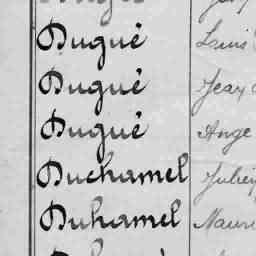 Dugué Louis
Dugué Jean
Dugué Ange
Duchamel Julien
Duhamel